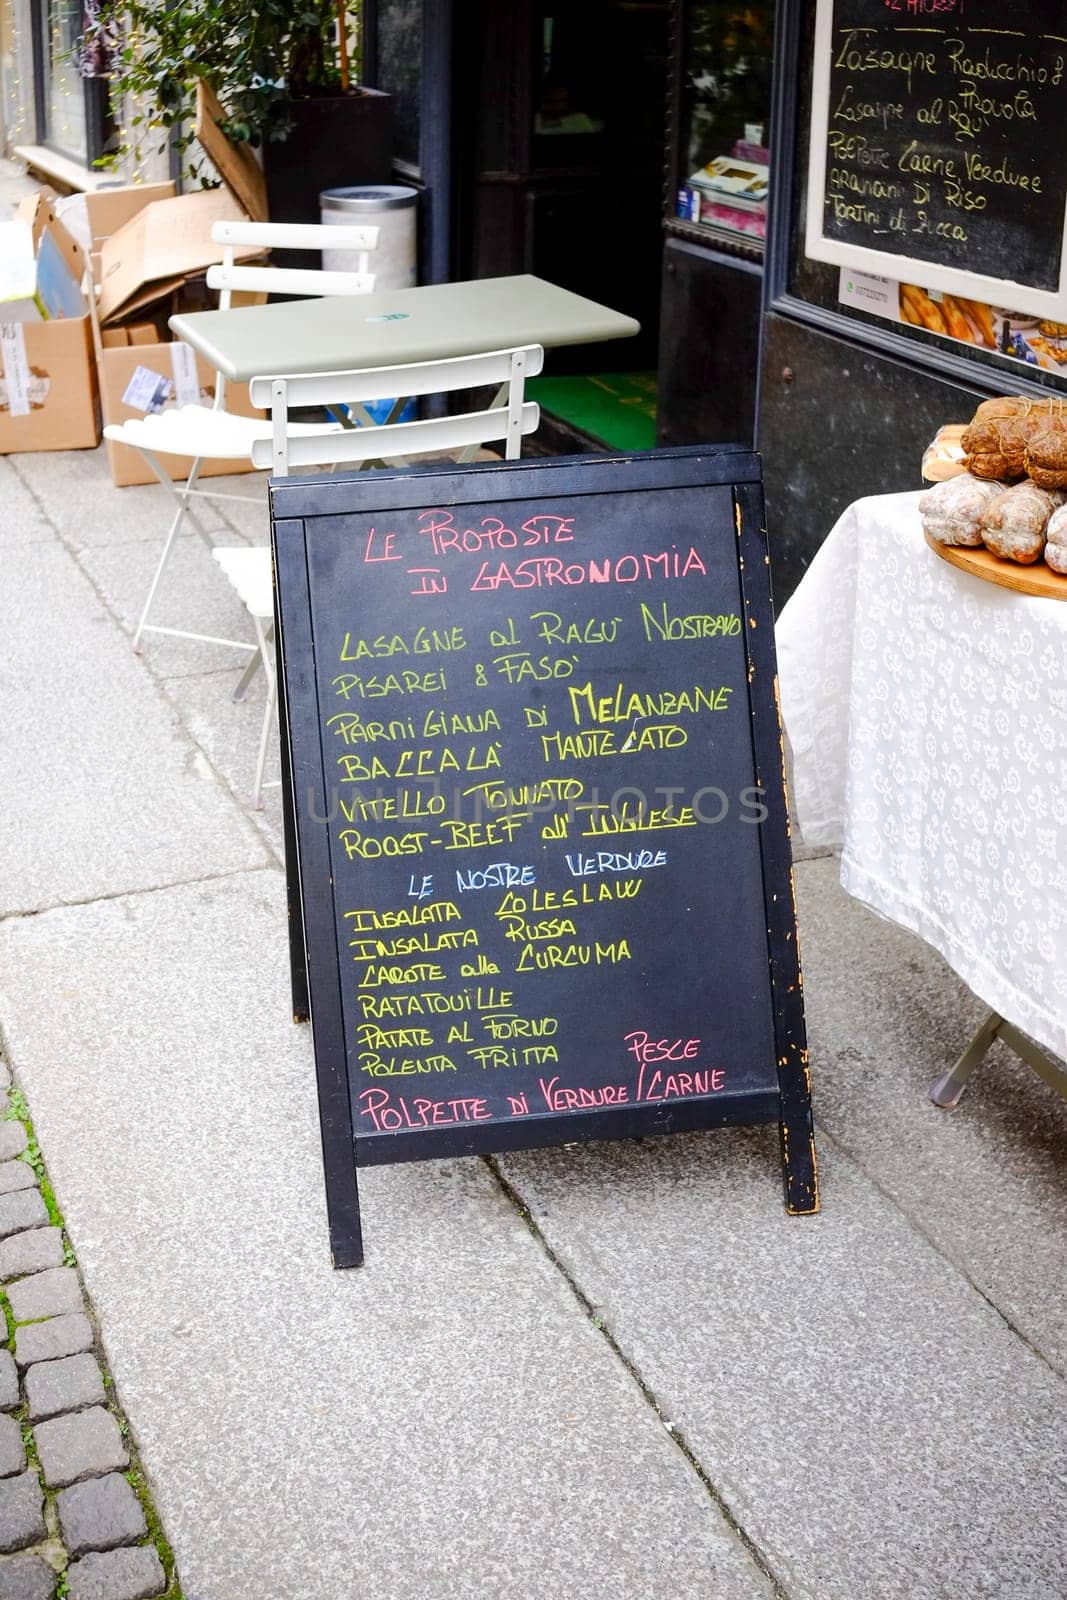 LE PROPOSTE
IN GASTRONOMIA
LASAGNE al RAGÙ NOSTRANO
PISAREI & FASO'
PARMIGIANA DI MELANZANE
BACCALÀ MANTECATO
VITELLO TONNATO
ROAST-BEEF all' INGLESE
LE NOSTRE VERDURE
INSALATA COLESLAW
INSALATA RUSSA
CAROTE alla CURCUMA
RATATOUILLE
PATATE AL FORNO
POLENTA FRITTA
PESCE
POLPETTE DI VERDURE/CARNE
Lasagne Radicchio &
Provola
Lasagne al Ragù
Polpette Carne Verdure
ARANCINI DI RISO
TORTINI di Zucca
UNLIMPHOTOS